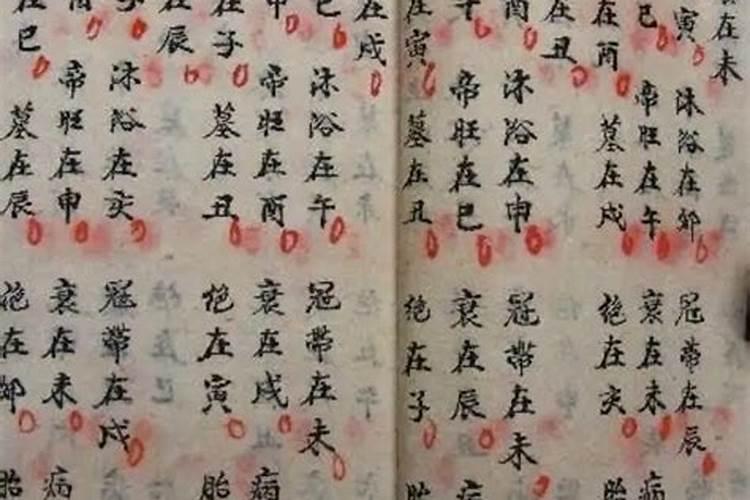 在未
寅 沐浴在卯 冠帶在辰
巳 帝旺在午 衰在未 病
在酉 墓在戌 绝在亥 胎
在丑
酉 沐浴在申 冠帶在未
午 帝旺在巳 衰在辰 病
在寅 墓在丑 绝在子 胎
在戌
巳 沐浴在午 冠帶在未
申 帝旺在酉 衰在戌 病
在子 墓在丑 绝在寅 胎
在辰
子 沐浴在亥 冠帶在戌
帝旺在申 衰在未 病
在巳 墓在辰 绝在卯 胎